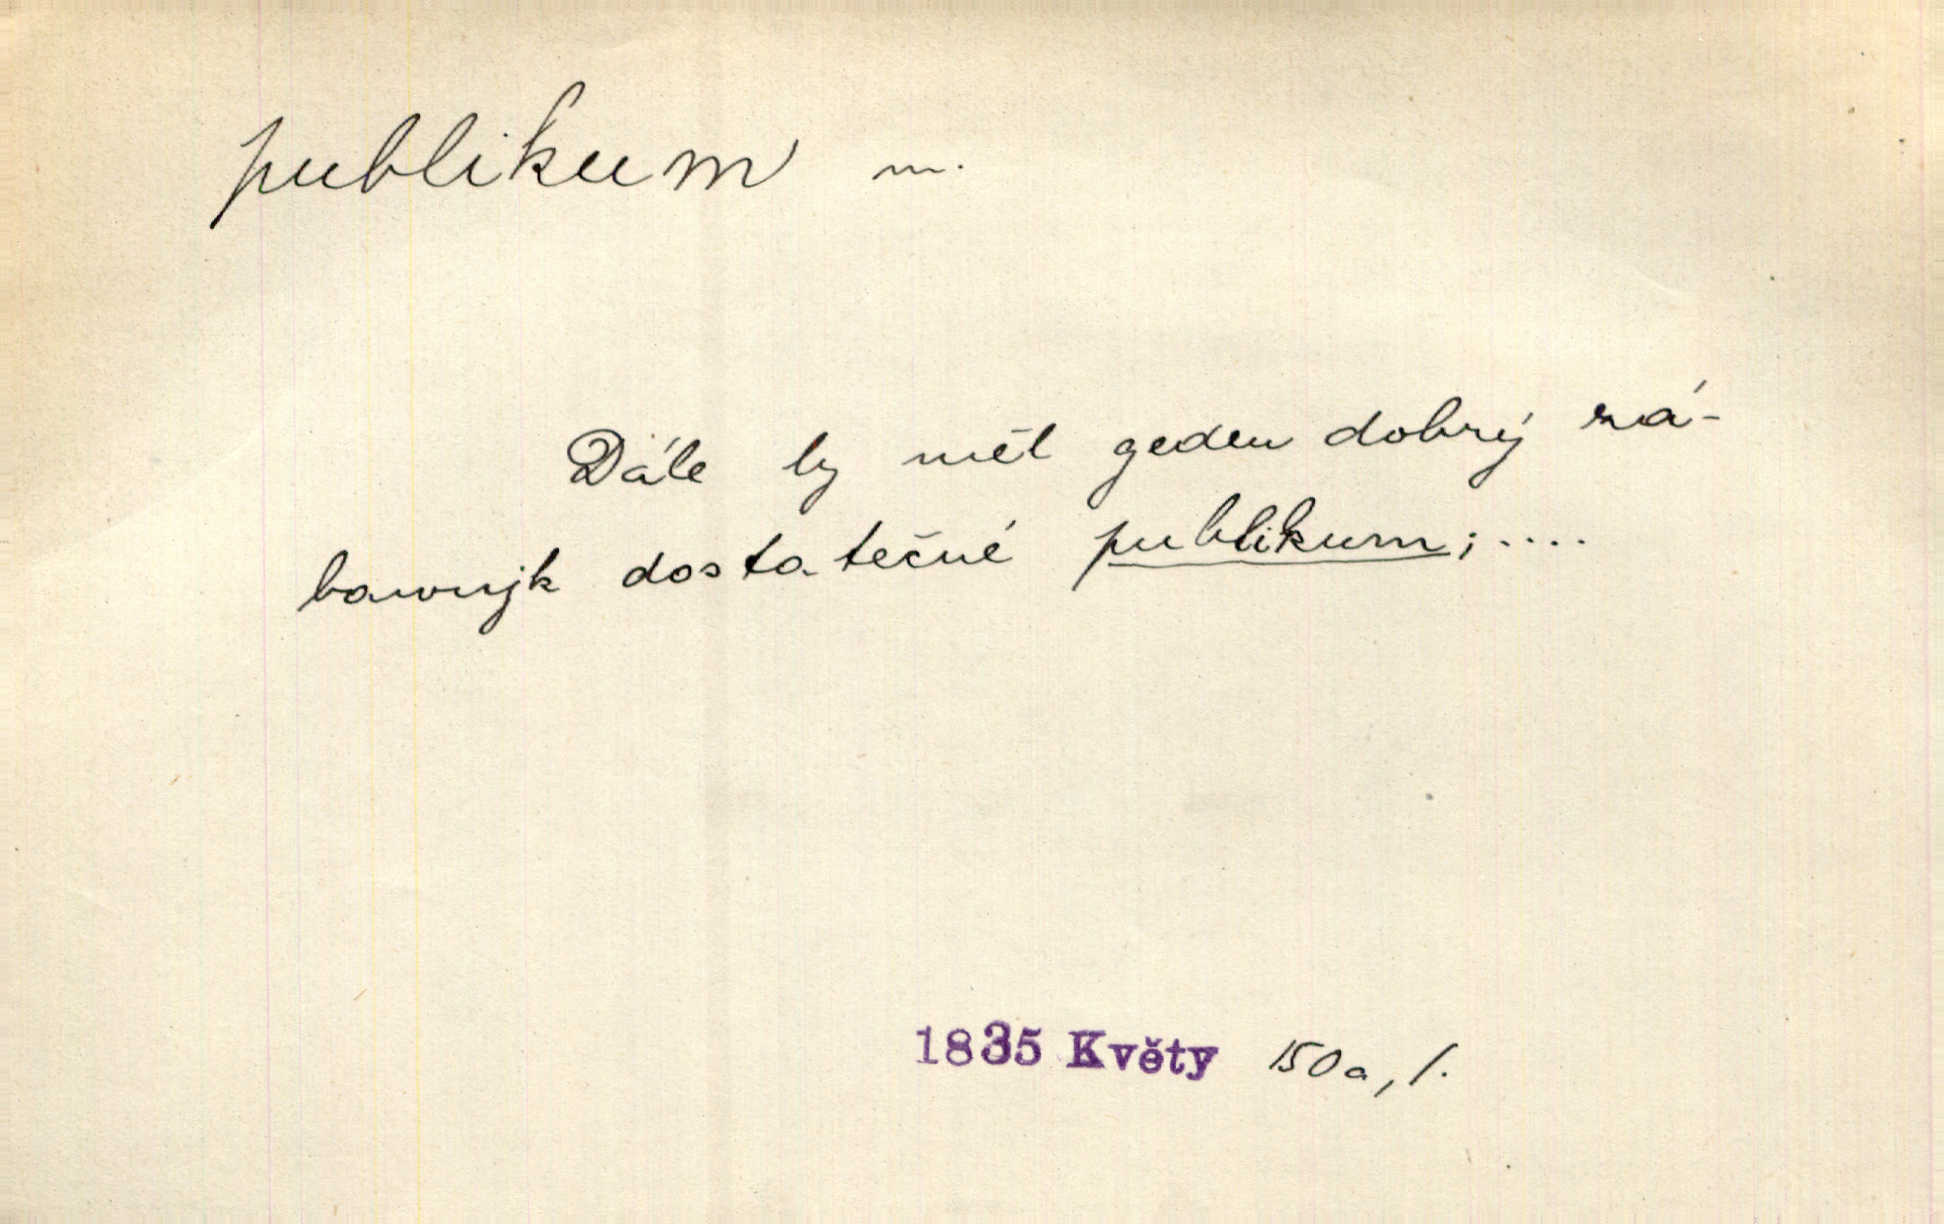 publikum m.
Dále by měl geden dobrý zá-
bawnjk dostatečné publikum; ....
1835 Květy 150a, 1.